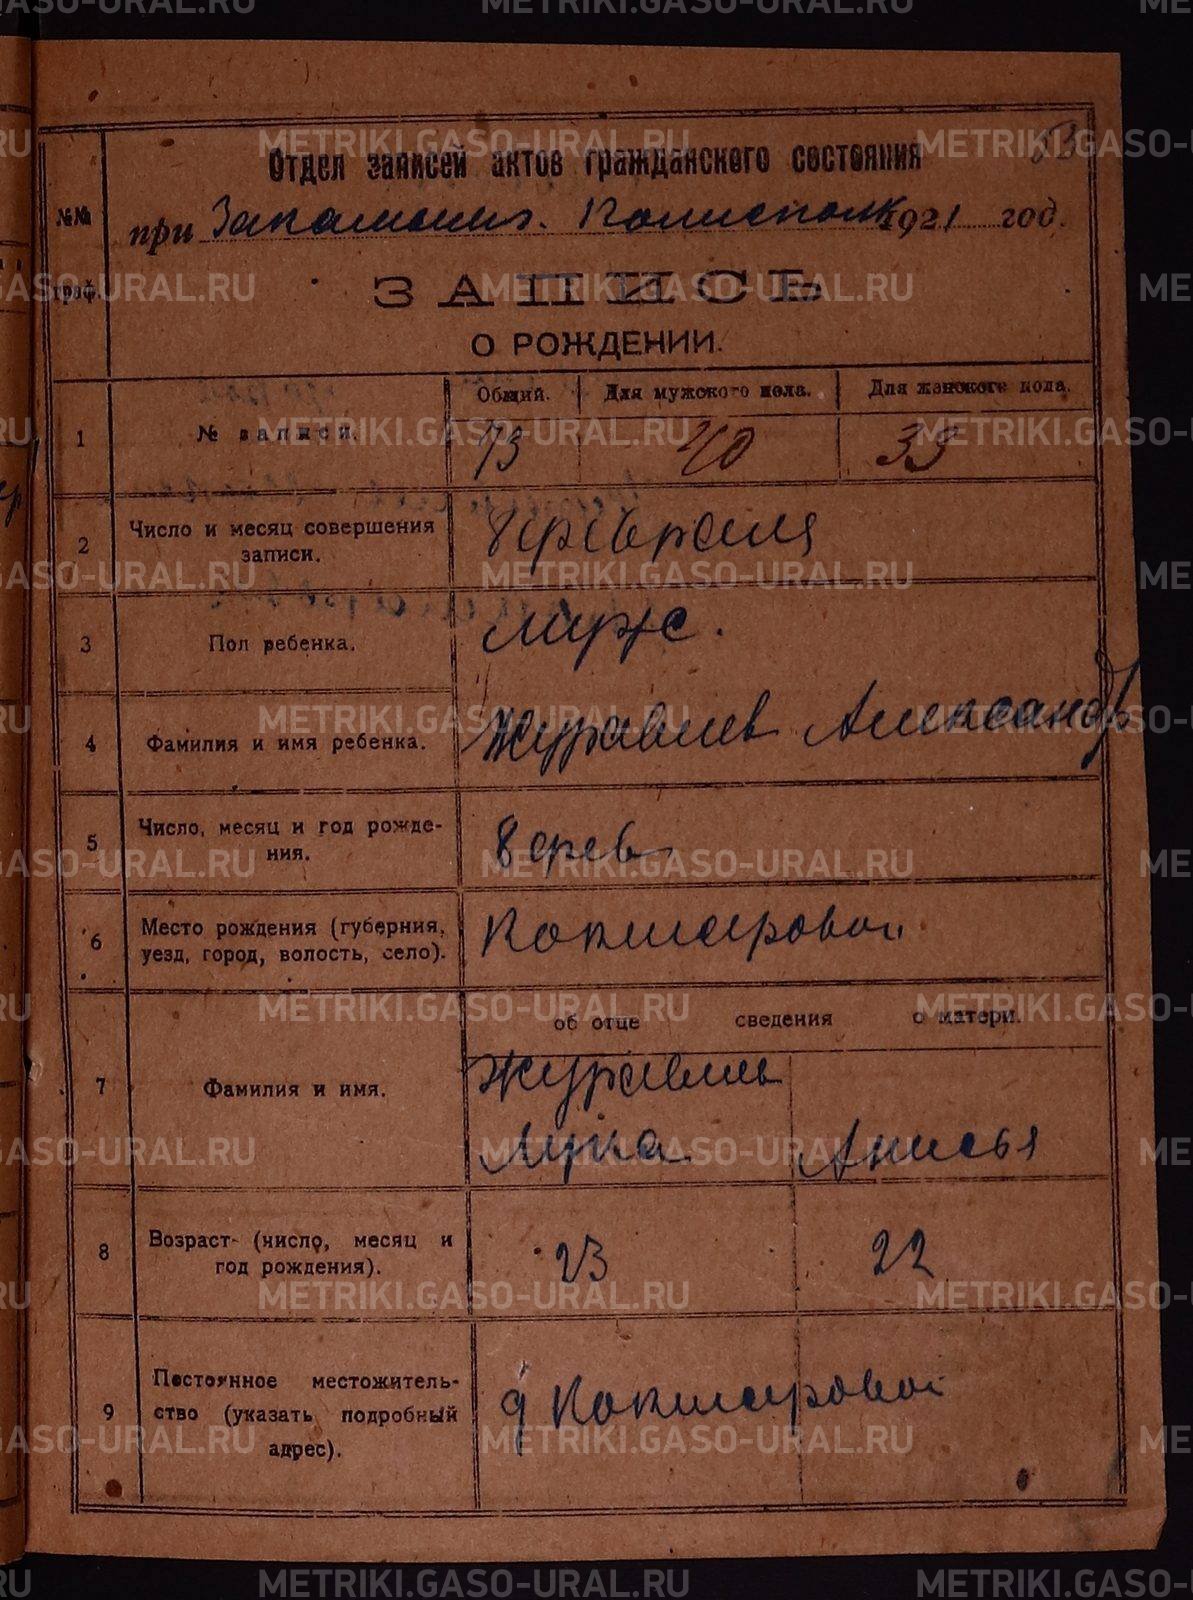 METRIKI.GASO-URAL.RU
Отдел записей актов гражданского состояния
№№ граф.
при Закамышл. Волисполк 1921 год.
ЗАПИСЬ
О РОЖДЕНИИ.
Общий. Для мужского пола. Для женского пола.
1 № записи. 73 40 33
2 Число и месяц совершения записи. 8 февраля
3 Пол ребенка. муж.
4 Фамилия и имя ребенка. Журавлев Александр
5 Число, месяц и год рождения. 8 фев
6 Место рождения (губерния, уезд, город, волость, село). Кокшаровой
об отце сведения о матери.
7 Фамилия и имя. Журавлев
Лука Анисья
8 Возраст (число, месяц и год рождения). 23 22
9 Постоянное местожительство (указать подробный адрес). д Кокшаровой